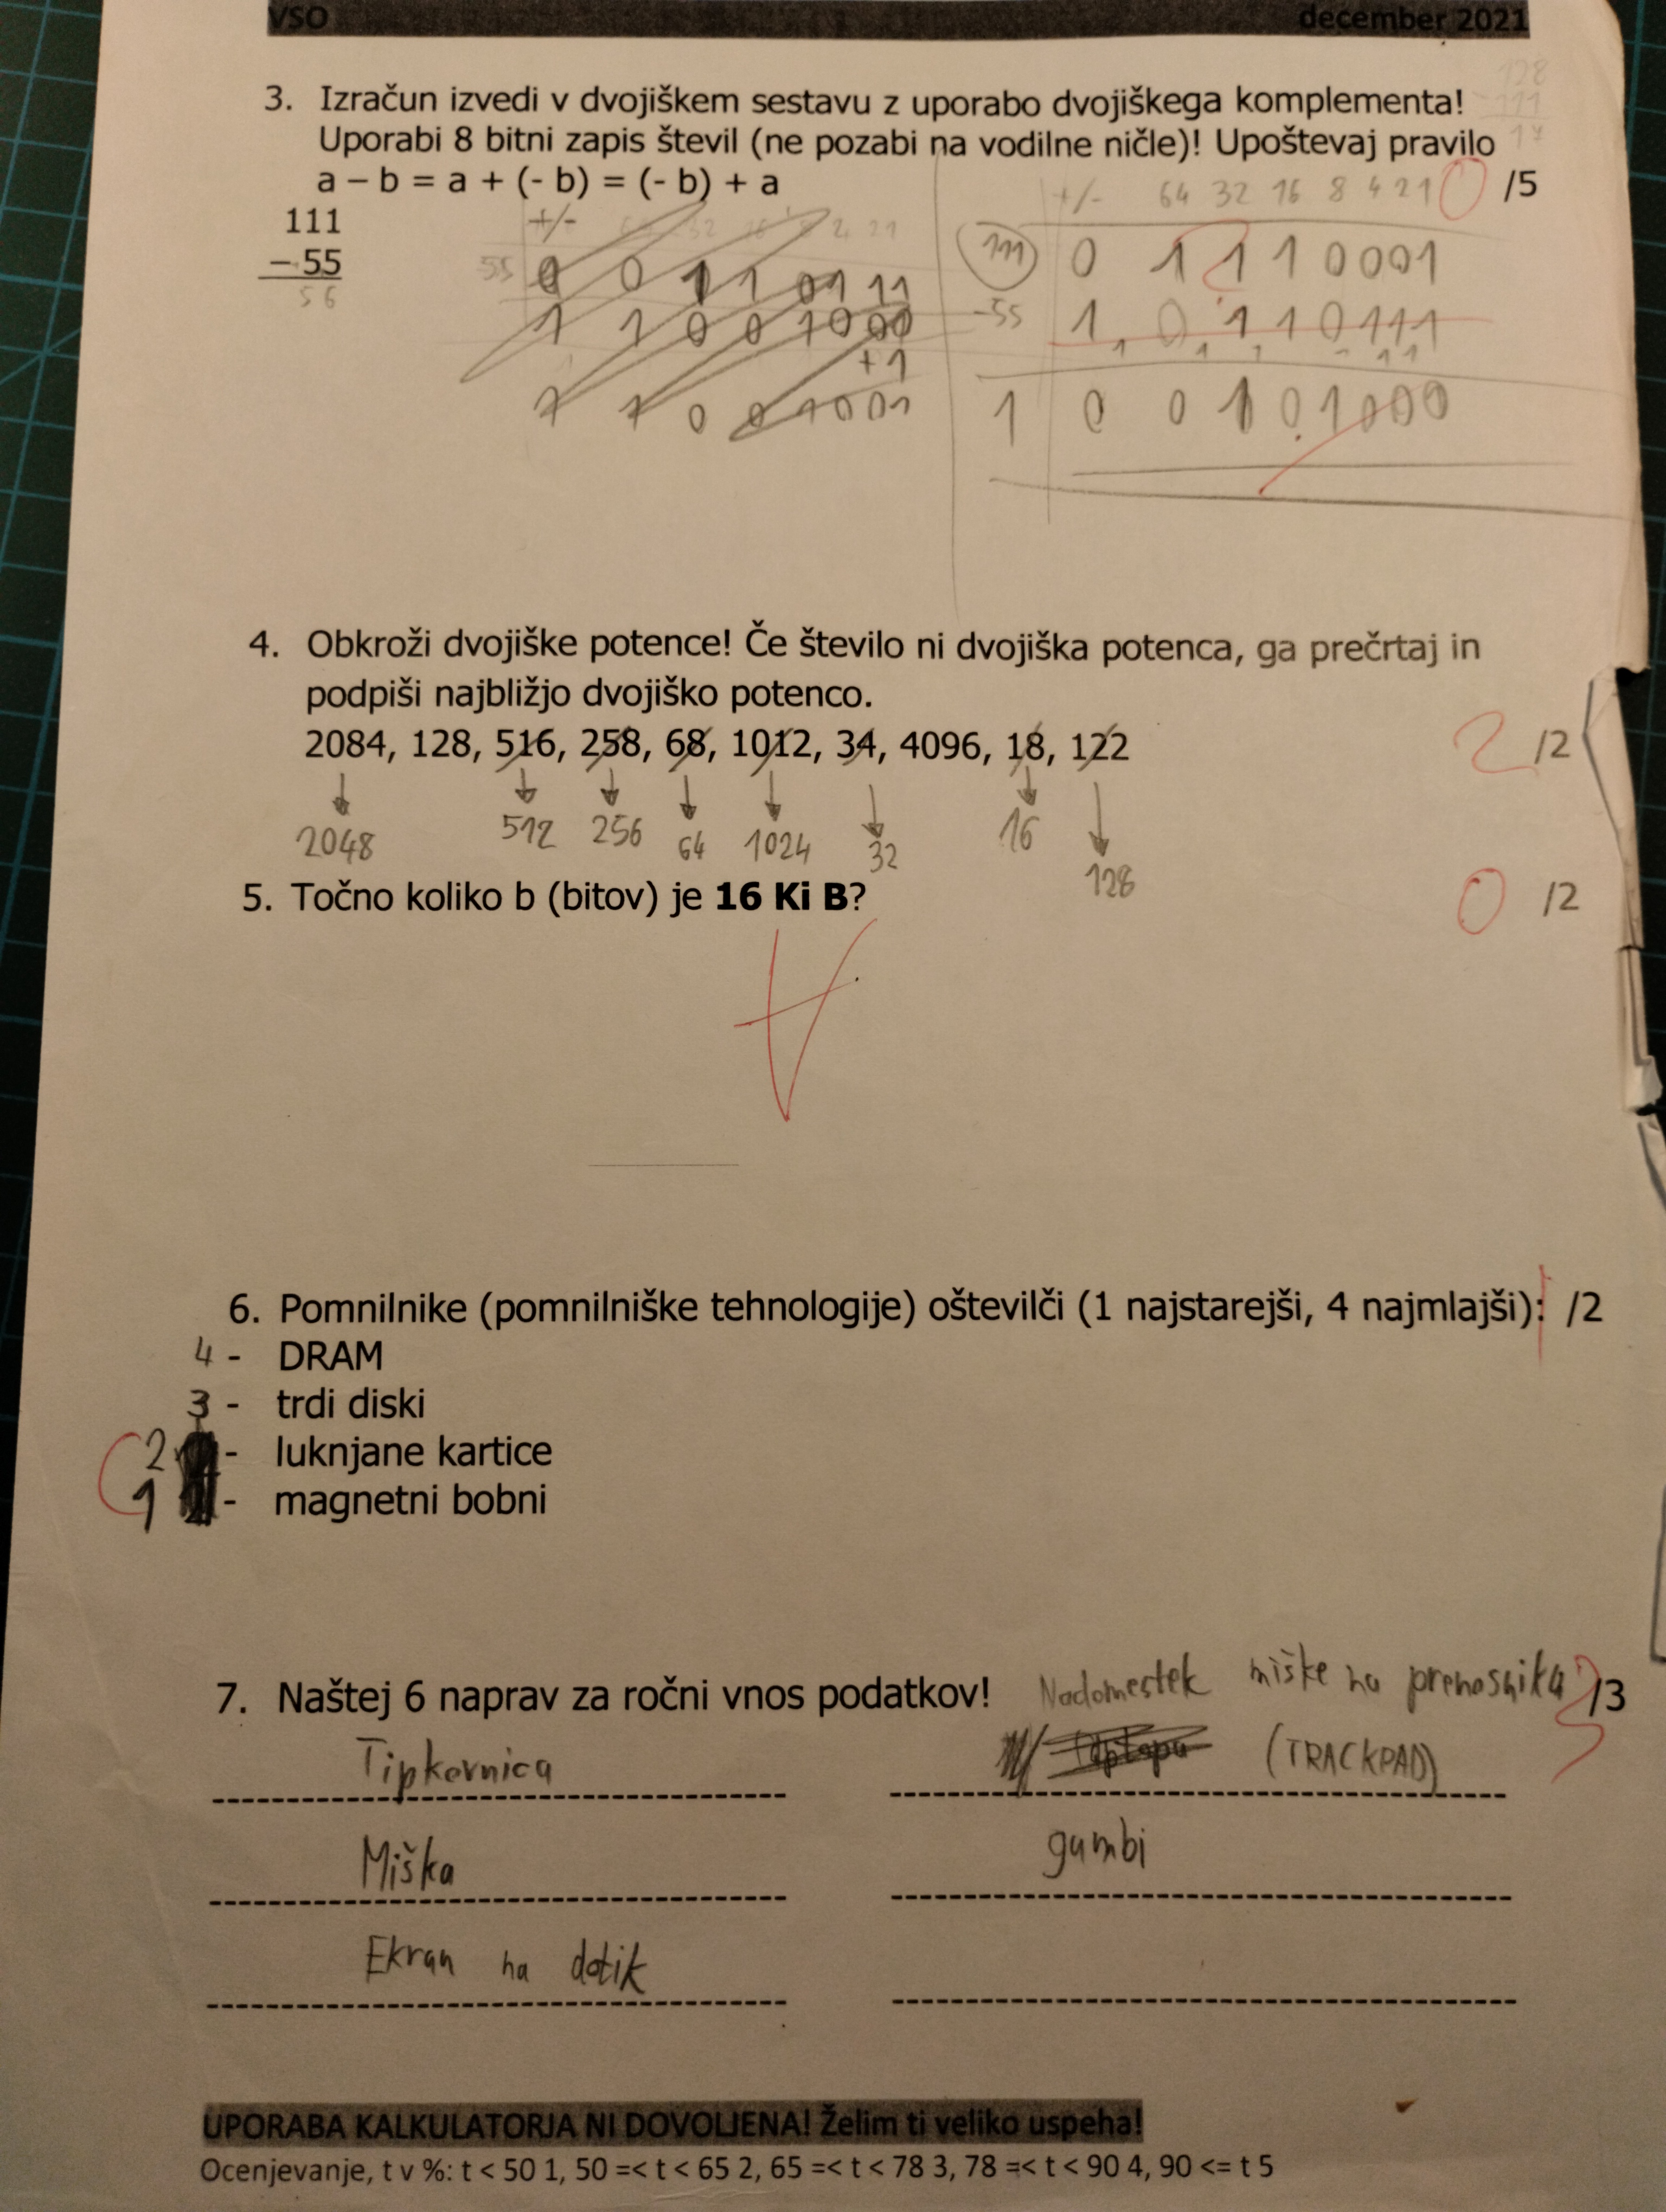 VSO december 2021
3. Izračun izvedi v dvojiškem sestavu z uporabo dvojiškega komplementa!
Uporabi 8 bitni zapis števil (ne pozabi na vodilne ničle)! Upoštevaj pravilo
a – b = a + (- b) = (- b) + a
0 /5
111
– 55
56
+/- 64 32 16 8 4 2 1
55 0 0 1 1 0 1 1 1
1 1 0 0 1 0 0 0
+1
1 1 0 0 1 0 0 1
+/- 64 32 16 8 4 2 1
111 0 1 1 1 0 0 0 1
-55 1 0 1 1 0 1 1 1
1 0 0 1 0 1 0 0 0
4. Obkroži dvojiške potence! Če število ni dvojiška potenca, ga prečrtaj in
podpiši najbližjo dvojiško potenco.
2084, 128, 516, 258, 68, 1012, 34, 4096, 18, 122
2 /2
2048 512 256 64 1024 32 16 128
5. Točno koliko b (bitov) je 16 Ki B?
0 /2
6. Pomnilnike (pomnilniške tehnologije) oštevilči (1 najstarejši, 4 najmlajši): 1 /2
4 - DRAM
3 - trdi diski
2 - luknjane kartice
1 - magnetni bobni
7. Naštej 6 naprav za ročni vnos podatkov! Nadomestek miške na prenosnika /3
Tipkovnica (TRACKPAD)
Miška gumbi
Ekran na dotik
UPORABA KALKULATORJA NI DOVOLJENA! Želim ti veliko uspeha!
Ocenjevanje, t v %: t < 50 1, 50 =< t < 65 2, 65 =< t < 78 3, 78 =< t < 90 4, 90 <= t 5